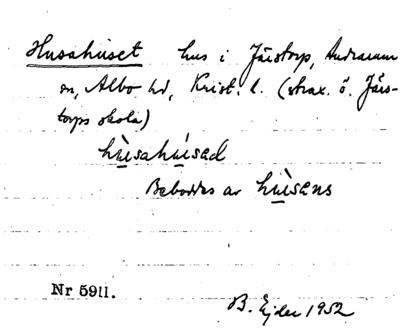 Husahuset hus i Järstorp, Andrarum
sn, Albo hd, Krist. l. (strax ö. Järs-
torps skola)
hùsahúsəd
Beboddes av hùsəns
Nr 5911.
B. Ejder 1952